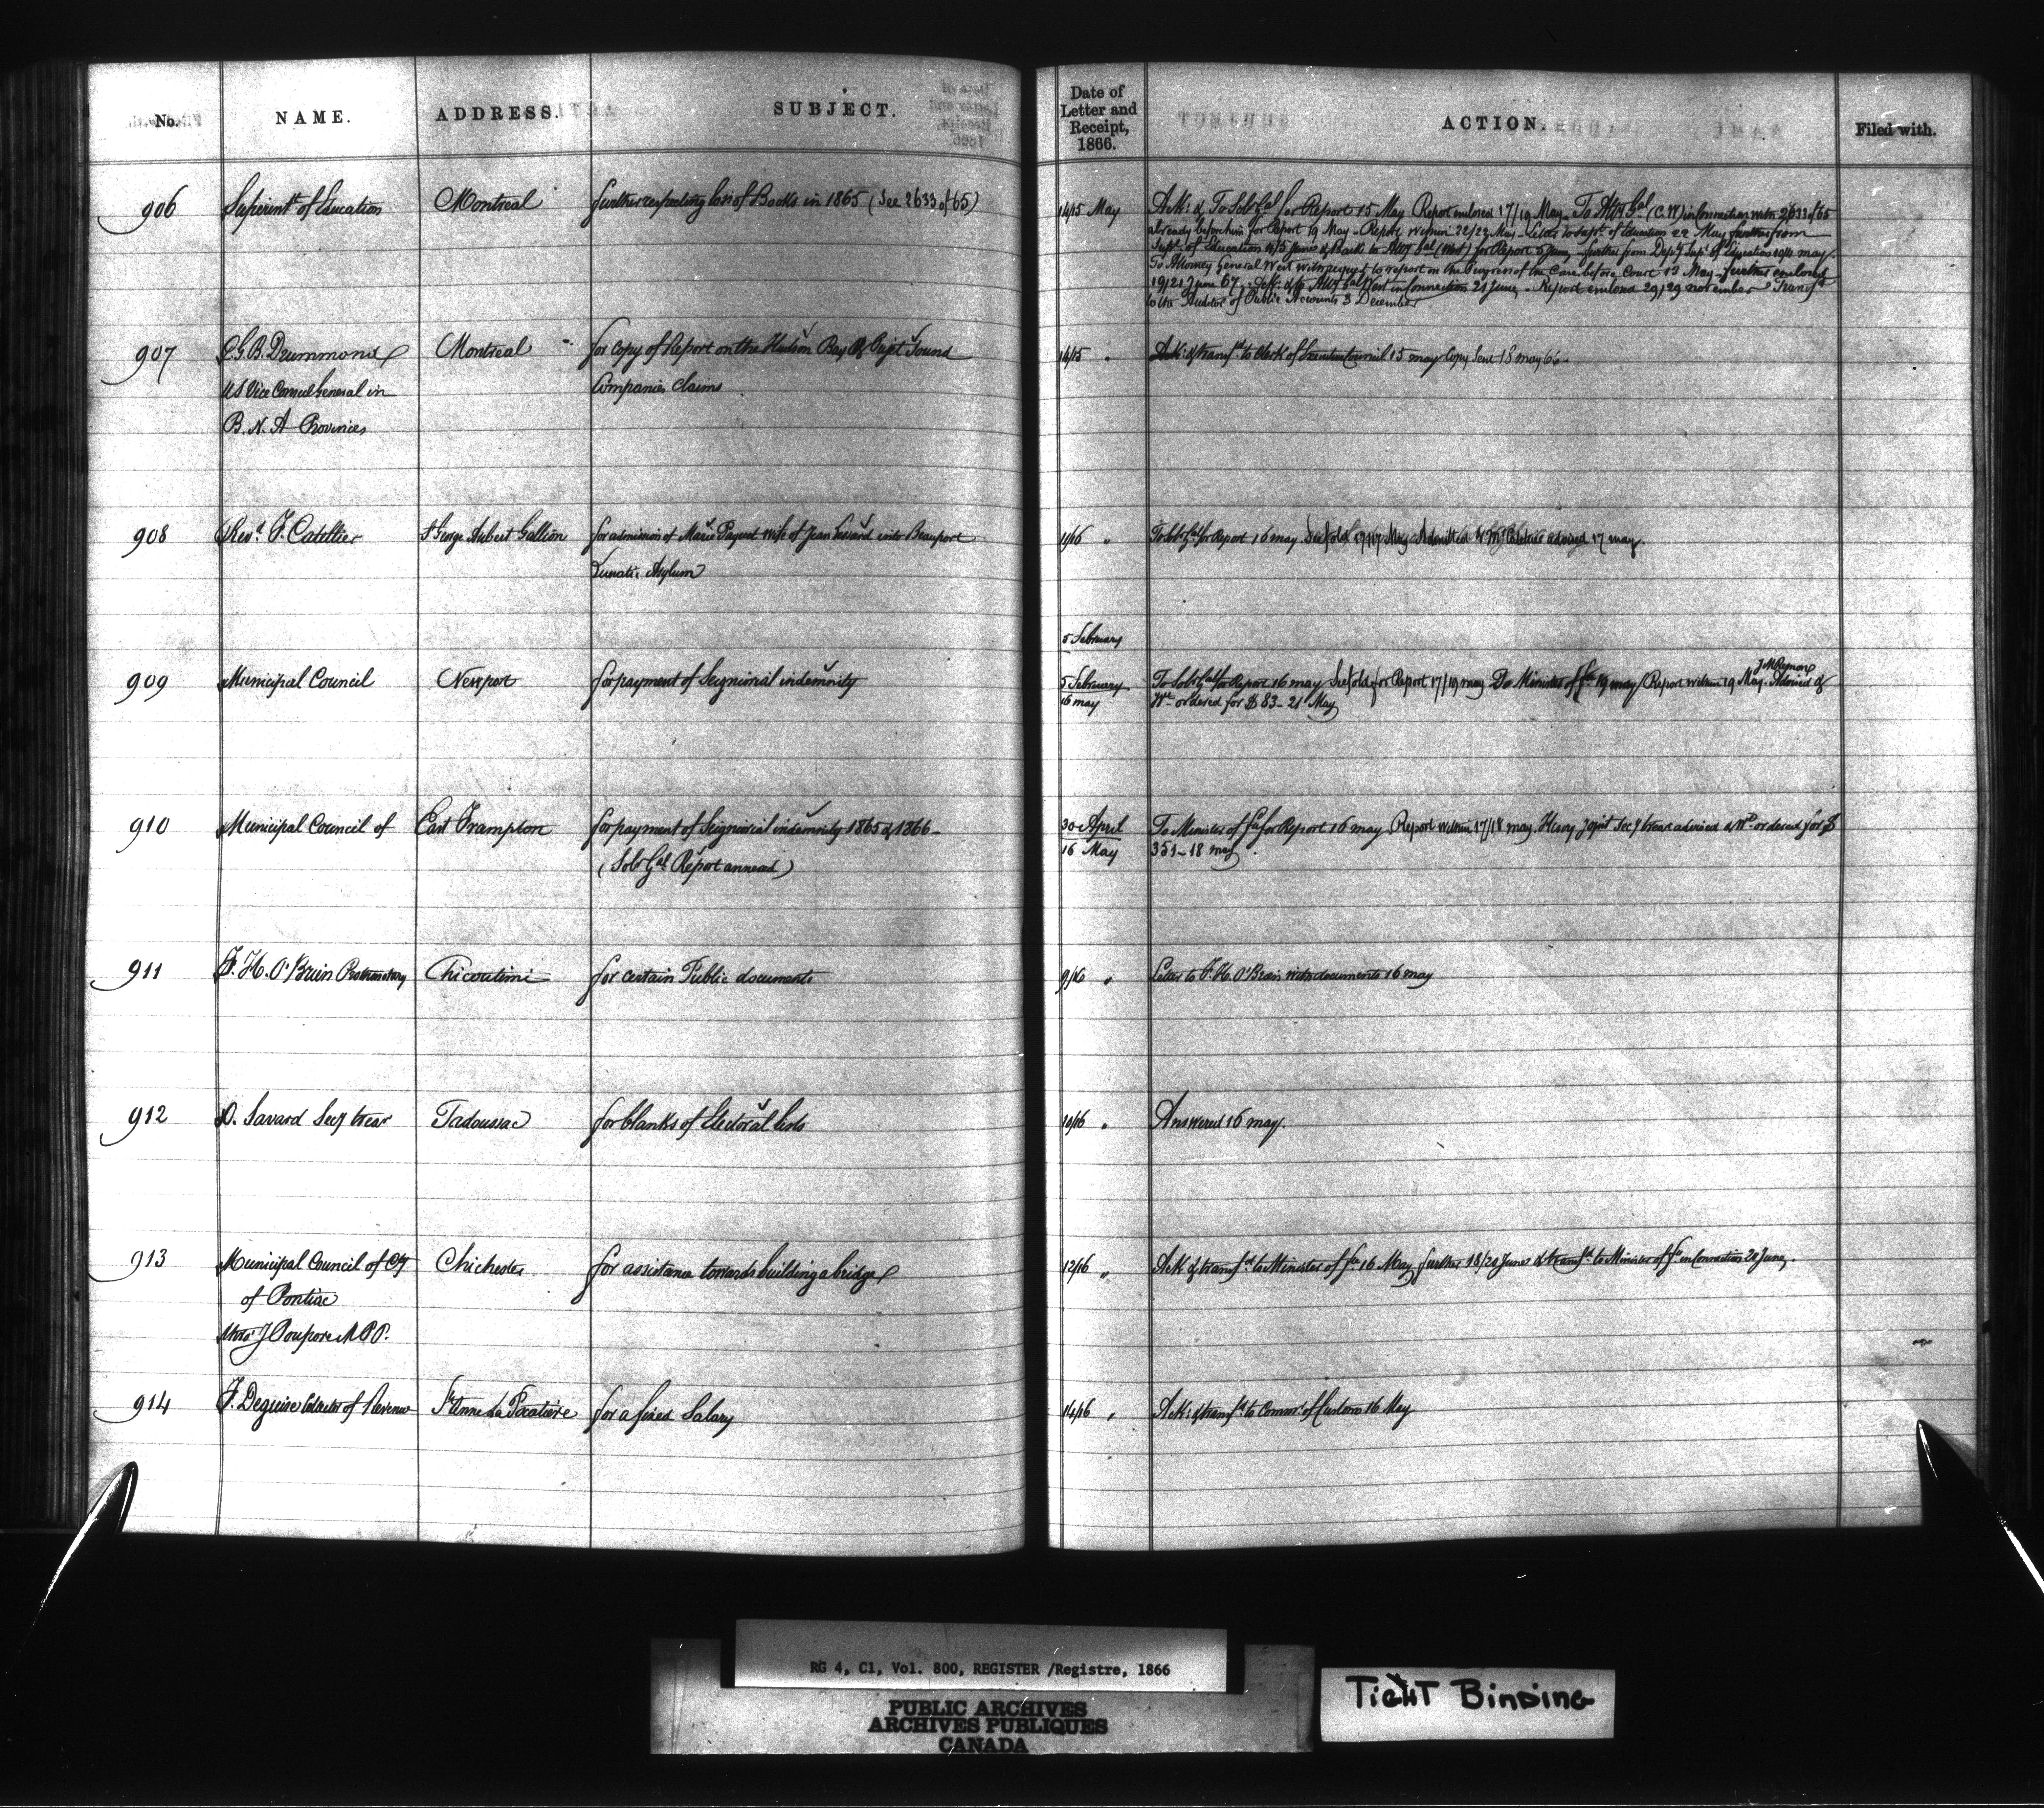 No. NAME. ADDRESS. SUBJECT. Date of Letter and Receipt, 1866. ACTION. Filed with.
906 Superint. of Education Montreal further respecting loss of Books in 1865 (See 2633 of 65) 14/15 May Ack: & To Solr Gal for Report 15 May Report enclosed 17/19 May - To Atty Gal (C.W) in Connection with 2633 of 65
already before him for Report 19 May - Report within 22/23 May - Letter to Supt. of Education 22 May further from
Supt. of Education 4/5 June & Back to Atty Gal (West) for Report 5 June - further from Depy Supt of Education 10/11 may.
To Attorney General West with request to report on the Progress of the Case before Court 13 May - further enclosed
19/21 June 67 - Ack: & to Atty Gal West in Connection 21 June - Report enclosed 29/29 november Transfd
to the Auditor of Public Accounts 3 December
907 G. B. Drummond Montreal for Copy of Report on the Hudson Bay & Puget Sound 14/15 " Ack: & transfd to Clerk of Executive Council 15 may Copy Sent 18 may 66 -
US Vice Consul General in Companies Claims
B. N. A Provinces
908 Revd. F. Catellier St George Aubert Gallion for admission of Marie wife of Jean into Beauport /16 " To Solr Gal for Report 16 may 17 May Admitted & advised 17 may
Lunatic Asylum
5 February
909 Municipal Council Newport for payment of Seigniorial indemnity 5 February To Solr Gal for Report 16 may for Report 17/19 may Do Minister of fce 19 may Report within 19 May - Advised &
16 may Wt ordered for $83 - 21 May
910 Municipal Council of East Frampton for payment of Seigniorial indemnity 1865 & 1866 - 30 April To Minister of fce for Report 16 may Report within 17/18 may Henry Joint Secy treas advised & Wt ordered for $
(Solr Gal Report annexed) 16 May 351 - 18 may
911 F. H. O'Brien Prothonotary Chicoutimi for certain Public documents 9/16 " Letter to F. H. O'Brien with documents 16 may
912 D. Savard Secy treas Tadoussac for blanks of Electoral lists 10/16 " Answered 16 may.
913 Municipal Council of Cty Chichester for assistance towards building a bridge 12/16 " Ack & transfd to Minister of fce 16 May further 18/20 June & transfd to Minister of fce in Connection 20 June.
of Pontiac
J Poupore M.P.P.
914 F. Deguise Collector of Revenue St Anne La Pocatière for a fixed Salary 14/16 " Ack: & transfd to Commr of Customs 16 May
RG 4, C1, Vol. 800, REGISTER /Registre, 1866
PUBLIC ARCHIVES
ARCHIVES PUBLIQUES
CANADA
TIGHT BINDING